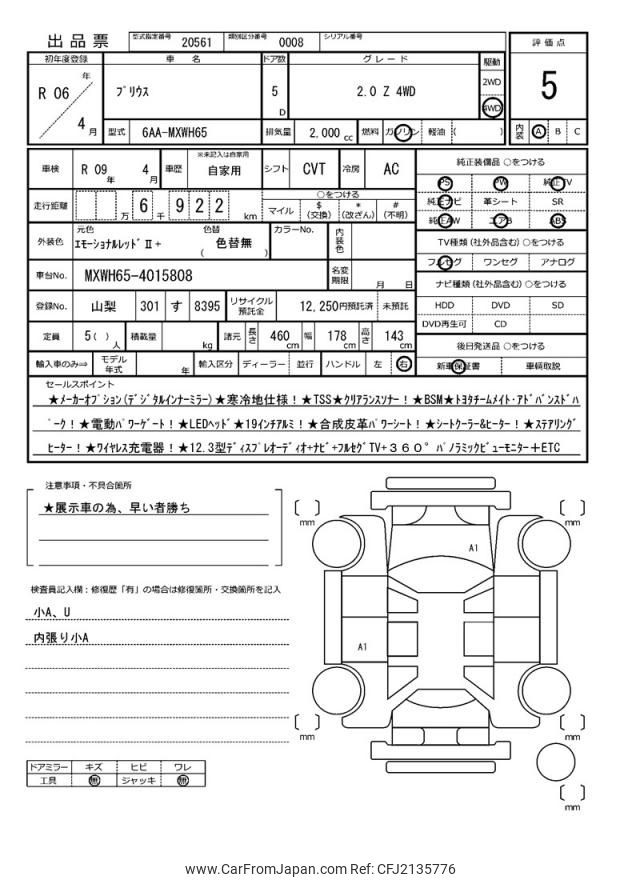 出品票 型式指定番号 20561 類別区分番号 0008 シリアル番号
評価点
5
内装 A B C
初年度登録 車名 ドア数 グレード 駆動
R 06 年 4 月 プリウス 5 D 2.0 Z 4WD 2WD 4WD
型式 6AA-MXWH65 排気量 2,000 cc 燃料 ガソリン 軽油 ( )
車検 R 09 年 4 月 車歴 ※未記入は自家用 自家用 シフト CVT 冷房 AC
走行距離 万 6 千 9 2 2 km ○をつける
マイル $(交換) *(改ざん) #(不明)
外装色 元色 ｴﾓｰｼｮﾅﾙﾚｯﾄﾞⅡ+ 色替 ( 色替無 ) カラーNo. 内装色
車台No. MXWH65-4015808 名変期限 月 日
登録No. 山梨 301 す 8395 リサイクル預託金 12,250円預託済 未預託
定員 5( )人 積載量 kg 諸元 長さ 460cm 幅 178cm 高さ 143cm
輸入車のみ⇨ モデル年式 年 輸入区分 ディーラー 並行 ハンドル 左 右
純正装備品 ○をつける
PS PW 純正TV
純正ナビ 革シート SR
純正AW エアB ABS
TV種類(社外品含む)○をつける
フルセグ ワンセグ アナログ
ナビ種類(社外品含む)○をつける
HDD DVD SD
DVD再生可 CD
後日発送品 ○をつける
新車保証書 車輌取説
セールスポイント
★ﾒｰｶｰｵﾌﾟｼｮﾝ(ﾃﾞｼﾞﾀﾙｲﾝﾅｰﾐﾗｰ)★寒冷地仕様！★TSS★ｸﾘｱﾗﾝｽｿﾅｰ！★BSM★ﾄﾖﾀﾁｰﾑﾒｲﾄ･ｱﾄﾞﾊﾞﾝｽﾄﾞﾊ
ﾟｰｸ！★電動ﾊﾟﾜｰｹﾞｰﾄ！★LEDﾍｯﾄﾞ★19ｲﾝﾁｱﾙﾐ！★合成皮革ﾊﾟﾜｰｼｰﾄ！★ｼｰﾄｸｰﾗｰ&ﾋｰﾀｰ！★ｽﾃｱﾘﾝｸﾞ
ﾋｰﾀｰ！★ﾜｲﾔﾚｽ充電器！★12.3型ﾃﾞｨｽﾌﾟﾚｲｵｰﾃﾞｨｵ+ﾅﾋﾞ+ﾌﾙｾｸﾞTV+３６０°ﾊﾟﾉﾗﾐｯｸﾋﾞｭｰﾓﾆﾀｰ＋ETC
注意事項・不具合箇所
★展示車の為、早い者勝ち
検査員記入欄：修復歴「有」の場合は修復箇所・交換箇所を記入
小A、U
内張り小A
ドアミラー キズ ヒビ ワレ
工具 無 ジャッキ 無
mm
mm
A1
A1
mm
mm
mm
www.CarFromJapan.com Ref: CFJ2135776